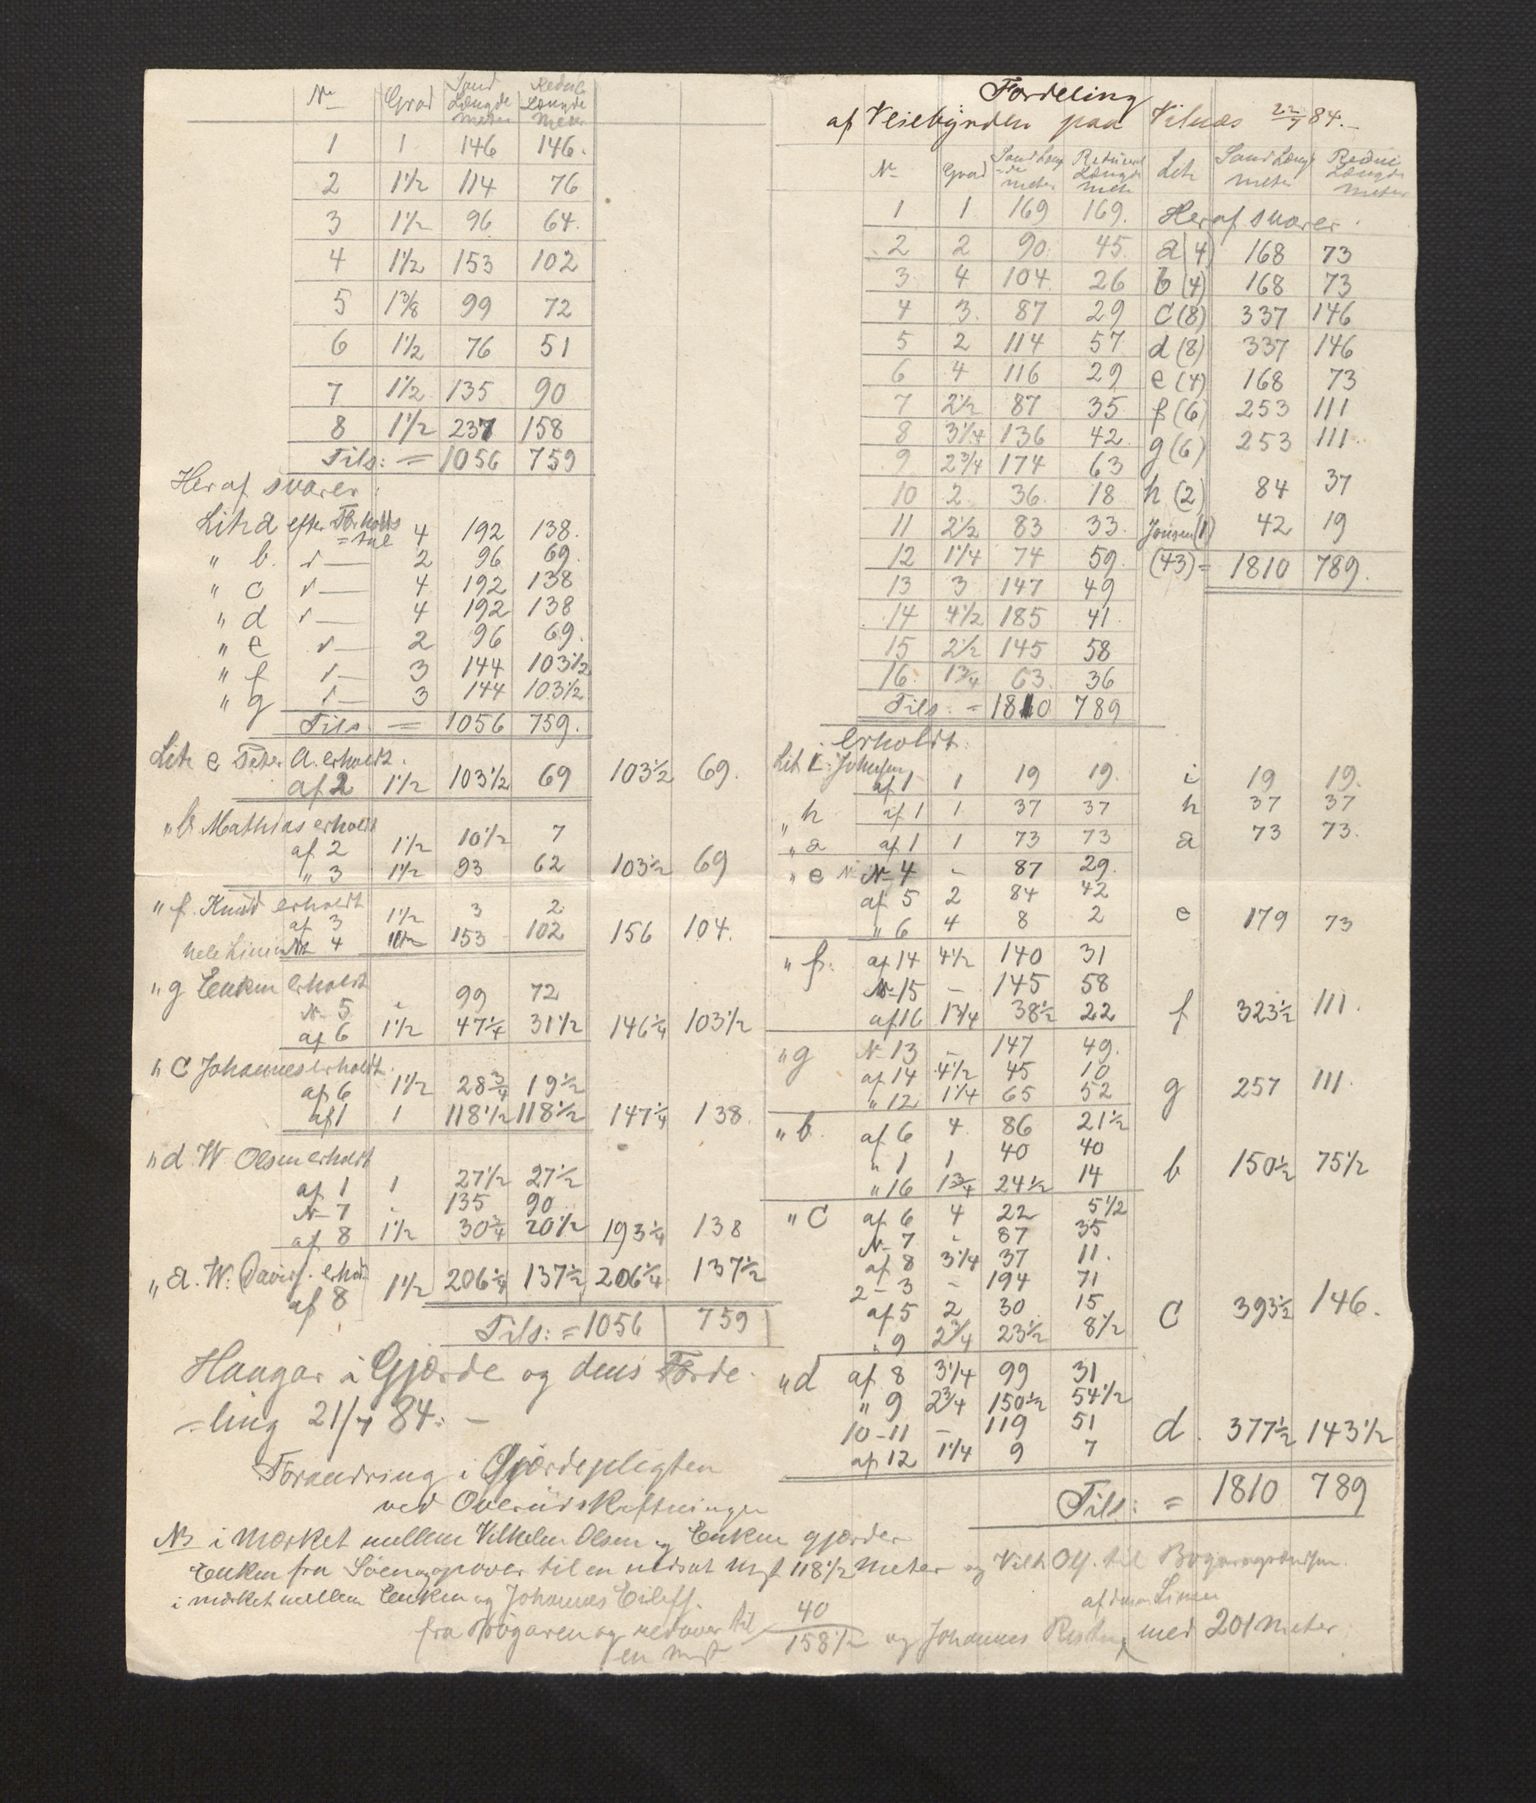 Nr Grad Sand Længde meter Reduc Længde meter
1 1 146 146.
2 1 1/2 114 76
3 1 1/2 96 64.
4 1 1/2 153 102
5 1 3/8 99 72
6 1 1/2 76 51
7 1 1/2 135 90
8 1 1/2 237 158
Tils: = 1056 759
Heraf svarer:
Litr a efter Forholds=tal 4 192 138.
" b. " — 2 96 69.
" c " — 4 192 138
" d " — 4 192 138
" e " — 2 96 69.
" f " — 3 144 103 1/2
" g " — 3 144 103 1/2
Tils. = 1056 759.
Litr e Peter A. erholdt.
af 2 1 1/2 103 1/2 69 103 1/2 69.
" b Mathias erholdt
af 2 1 1/2 10 1/2 7
" 3 1 1/2 93 62 103 1/2 69
" f. Knud erholdt
af 3 1 1/2 3 2
hele Linien Nr 4 153 102 156 104.
" g Enken erholdt
Nr 5 " 99 72
af 6 1 1/2 47 1/4 31 1/2 146 1/4 103 1/2
" C Johannes erholdt.
af 6 1 1/2 28 3/4 19 1/2
af 1 1 118 1/2 118 1/2 147 1/4 138
" d W Olsen erholdt
af 1 1 27 1/2 27 1/2
Nr 7 " 135 90
af 8 1 1/2 30 3/4 20 1/2 193 1/4 138
" a. W. Davids. erholdt
af 8 1 1/2 206 1/4 137 1/2 206 1/4 137 1/2
Tils: = 1056 759
Haugar å Gjærde og dens Forde
=ling 21/7 84. —
Forandring i Gjærdepligten
ved Overudskiftningen
NB i Mærket mellem Vilhelm Olsen og Enken gjærder
Enken fra Søen og opover til en nedsat 118 1/2 Meter og Vilh Ols. til
i mærket mellem Enken og Johannes Eileff.
fra Bøgaren og nedover til 40
en 158 1/2 og Johannes med 201 Meter
Fordeling
af Veiebyrden paa Vilnæs 22/7 84. —
Nr Grad Sand Længde meter Reduceret Længde meter Litr Sand Længde meter Reduc Længde meter
1 1 169 169. Heraf svarer.
2 2 90. 45. a (4) 168 73
3 4 104. 26 b (4) 168 73
4 3. 87 29 C (8) 337 146
5 2 114 57 d (8) 337 146
6 4 116 29 e (4) 168 73
7 2 1/2 87 35 f (6) 253 111
8 3 1/4 136 42. g (6) 253 111.
9 2 3/4 174 63
10 2 36. 18 h (2) 84 37
11 2 1/2 83 33. Jensen (1) 42 19
12 1 1/4 74 59. (43) = 1810 789.
13 3 147 49
14 4 1/2 185 41
15 2 1/2 145 58
16. 1 3/4 63. 36
Tils. = 1810 789
erholdt.
Litr i.
af 1 1 19 19. i 19 19.
" h af 1 1 37 37 h 37 37
" a af 1 1 73 73 a 73 73.
" e Nr 4 - 87 29.
af 5 2 84 42
" 6 4 8 2 e 179 73
" f. af 14 4 1/2 140 31
Nr 15 — 145 58
af 16 1 3/4 38 1/2 22 f 323 1/2 111.
" g Nr 13 — 147 49.
af 14 4 1/2 45 10
" 12 1 1/4 65 52 g 257 111.
" b. af 6 4 86 21 1/2
" 1 1 40 40
" 16 1 3/4 24 1/2 14 b 150 1/2 75 1/2
" C af 6 4 22 5 1/2
Nr 7 " 87 35
af 8 3 1/4 37 11.
2 - 3 — 194 71
af 5 2 30 15
" 9 2 3/4 23 1/2 8 1/2 C 393 1/2 146.
" d af 8 3 1/4 99 31
" 9 2 3/4 150 1/2 54 1/2
10 - 11 — 119 51
af 12 1 1/4 9 7 d. 377 1/2 143 1/2
Tils: = 1810 789